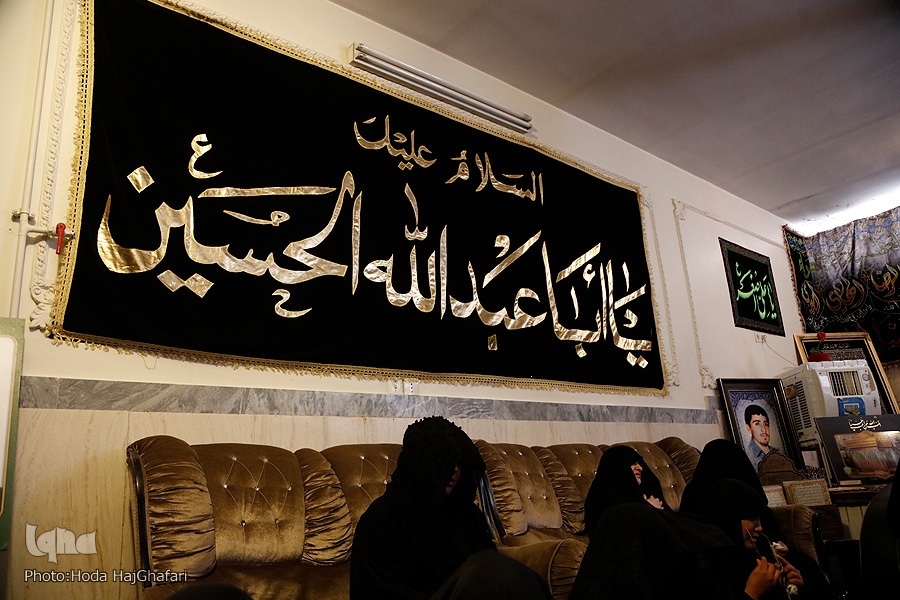 السَّلامُ عَلَيْكَ
يا أَبا عَبْدِ اللهِ الحُسَيْن
یا علی اصغر
iqna
Photo:Hoda HajGhafari